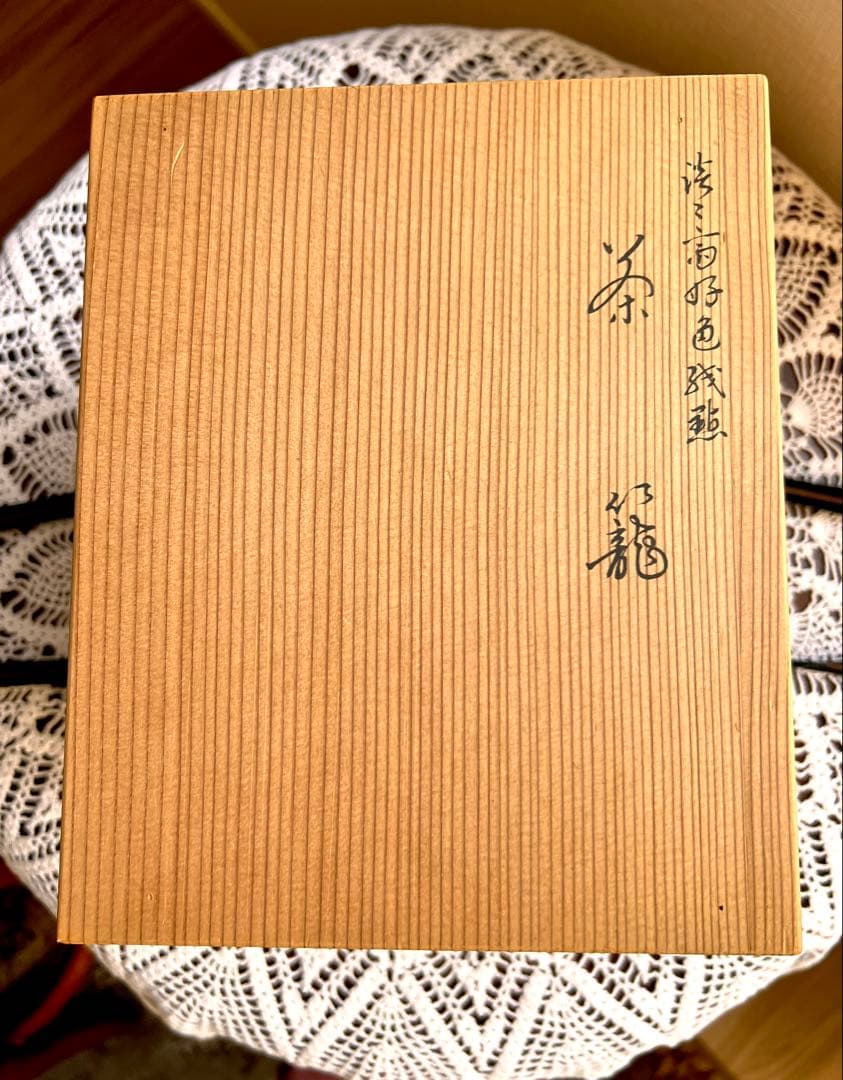 淡々斎好色紙点
茶籠